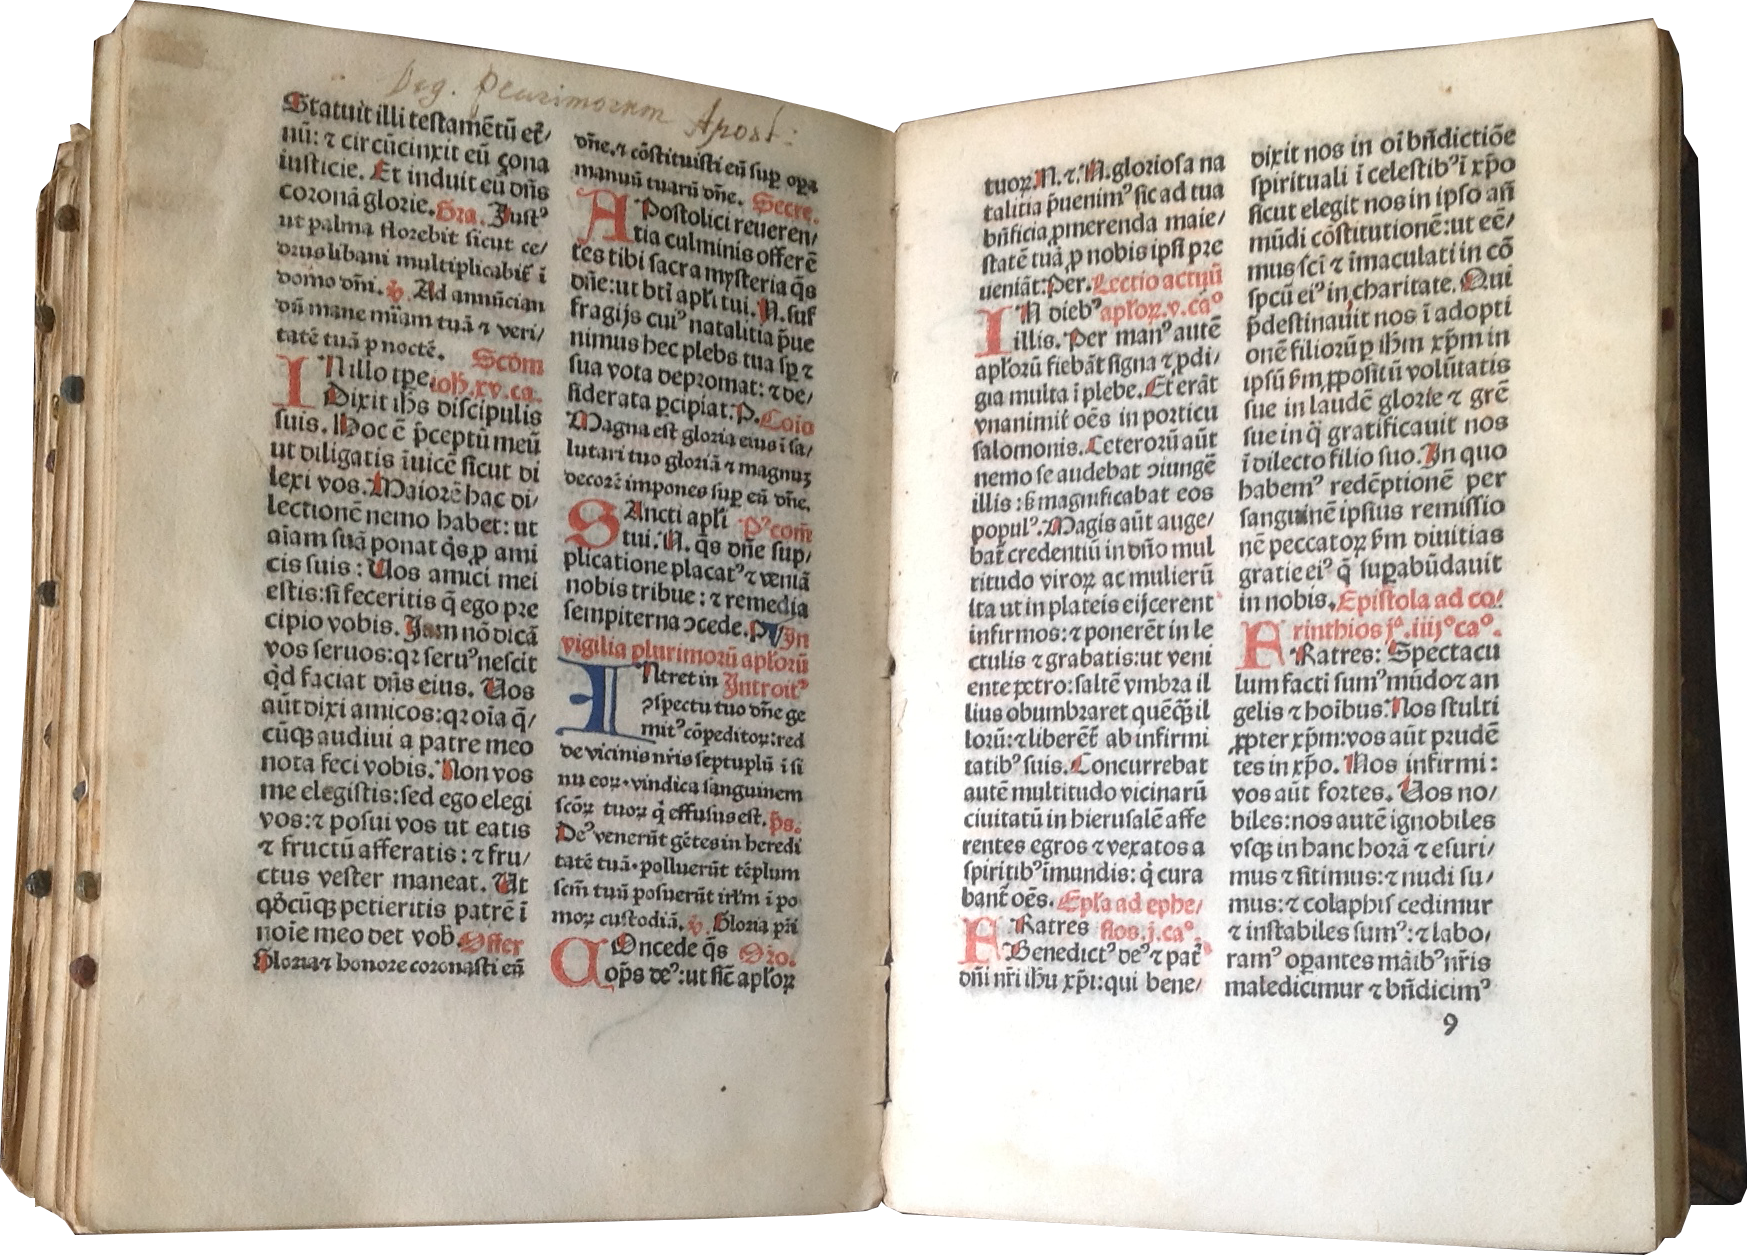 Deg. plurimorum Apost:
Statuit illi testamētū et/
nū: ⁊ circūcinxit eū çona
iusticie. Et induit eū dn̄s
coronā glorie. Gra. Just⁹
ut palma florebit sicut ce/
drus libani multiplicabit̉ ī
domo dn̄i. v̉. Ad annūcian
dū mane mīam tuā ⁊ veri/
tatē tuā p noctē. Scdm
IN illo tp̄e ioh̄. xv. ca.
Dixit ih̄s discipulis
suis. Hoc ē p̄ceptū meū
ut diligatis īuicē sicut di
lexi vos. Maiorē hac di/
lectionē nemo habet: ut
aīam suā ponat q̄s ꝓ ami
cis suis: Uos amici mei
estis: si feceritis q̄ ego pre
cipio vobis. Jam nō dicā
vos seruos: qꝛ seru⁹ nescit
q̄d faciat dn̄s eius. Uos
aūt dixi amicos: qꝛ oīa q̄/
cūqꝫ audiui a patre meo
nota feci vobis. Non vos
me elegistis: sed ego elegi
vos: ⁊ posui vos ut eatis
⁊ fructū afferatis: ⁊ fru/
ctus vester maneat. Ut
qd̄cūqꝫ petieritis patrē ī
noīe meo det vob̄. Offer
Gloria ⁊ honore coronasti eū
dn̄e. ⁊ cōstituisti eū suꝑ oꝑa
manuū tuarū dn̄e. Secre.
APostolici reueren/
tia culminis offerē
tes tibi sacra mysteria q̄s
dn̄e: ut bt̄i apl̄i tui. N. suf
fragijs cui⁹ natalitia p̄ue
nimus hec plebs tua sꝑ ⁊
sua vota depromat: ⁊ de/
siderata ꝑcipiat: P. Cōio
Magna est gloria eius ī sa/
lutari tuo gloriā ⁊ magnuꝫ
decorē impones suꝑ eū dn̄e.
SAncti apl̄i P⁹ com̄
tui. N. q̄s dn̄e sup/
plicatione placat⁹ ⁊ veniā
nobis tribue: ⁊ remedia
sempiterna ↄcede. P In
vigilia plurimorū apl̄orū
INtret in Introit⁹
ↄspectu tuo dn̄e ge
mit⁹ cōpeditoꝝ: red
de vicinis nr̄is septuplū ī si
nu eoꝝ. vindica sanguinem
sc̄oꝝ tuoꝝ q̄ effusus est. ps̄.
De⁹ venerūt gētes in heredi
tatē tuā. polluerūt tēplum
sc̄m tuū posuerūt irl̄m ī po
moꝝ custodiā. v̉. Gloria pr̄i
COncede q̄s Oro.
oꝑs de⁹: ut sic̄ apl̄oꝝ
tuoꝝ N. ⁊. N. gloriosa na
talitia p̄uenim⁹ sic ad tua
bn̄ficia ꝓmerenda maie/
statē tuā ꝓ nobis ipsi pre
ueniāt: Per. Lectio actuū
IN dieb⁹ apl̄oꝝ. v. ca⁰
illis. Per man⁹ autē
apl̄orū fiebāt signa ⁊ ꝓdi/
gia multa ī plebe. Et erāt
vnanimit̉ oēs in porticu
salomonis. Ceterorū aūt
nemo se audebat ↄiungē
illis: s̄ magnificabat eos
popul⁹. Magis aūt auge/
bat̉ credentiū in dn̄o mul
titudo viroꝝ ac mulierū
ita ut in plateis eijcerent
infirmos: ⁊ ponerēt in le
ctulis ⁊ grabatis: ut veni
ente petro: saltē vmbra il
lius obumbraret quēqꝫ il
lorū: ⁊ liberēt̉ ab infirmi
tatib⁹ suis. Concurrebat
autē multitudo vicinarū
ciuitatū in hierusalē affe
rentes egros ⁊ vexatos a
spiritib⁹ īmundis: q̄ cura
bant̉ oēs. Epl̄a ad ephe/
FRatres sios. j. ca⁰.
Benedict⁹ de⁹ ⁊ pat̉
dn̄i nr̄i ih̄u xp̄i: qui bene/
dixit nos in oī bn̄dictiōe
spirituali ī celestib⁹ ī xp̄o
sicut elegit nos in ipso an̄
mūdi cōstitutionē: ut eē/
mus sc̄i ⁊ īmaculati in cō
spcū ei⁹ in charitate. Qui
p̄destinauit nos ī adopti
onē filiorū ꝑ ih̄m xp̄m in
ipsū s̄m ꝓpositū volūtatis
sue in laudē glorie ⁊ grē
sue in q̄ gratificauit nos
ī dilecto filio suo. In quo
habem⁹ redēptionē per
sanguinē ipsius remissio
nē peccatoꝝ s̄m diuitias
gratie ei⁹ q̄ suꝑabūdauit
in nobis. Epistola ad co/
rinthios j.ᵃ iiij⁰ ca⁰.
FRatres: Spectacu
lum facti sum⁹ mūdo ⁊ an
gelis ⁊ hoībus. Nos stulti
ꝓpter xp̄m: vos aūt prudē
tes in xp̄o. Nos infirmi:
vos aūt fortes. Uos no/
biles: nos autē ignobiles
vsqꝫ in hanc horā ⁊ esuri/
mus ⁊ sitimus: ⁊ nudi su/
mus: ⁊ colaphis cedimur
⁊ instabiles sum⁹: ⁊ labo/
ram⁹ oꝑantes māib⁹ nr̄is
maledicimur ⁊ bn̄dicim⁹
9